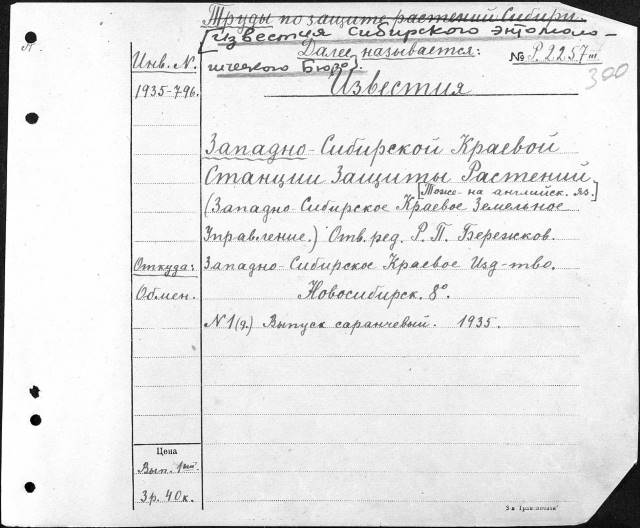 Труды по защите растений Сибири.
[Известия Сибирского энтомоло-
Далее называется:
гического Бюро].
Инв. N.
№ P. 2257 III
300
1935-796.
Известия
Западно-Сибирской Краевой
Станции Защиты Растений
[Тоже на английск. яз.]
(Западно-Сибирское Краевое Земельное
Управление.) Отв. ред. Р. П. Бережков.
Откуда: Западно-Сибирское Краевое Изд-тво.
Обмен. Новосибирск. 8°.
N 1(8.) Выпуск саранчевый. 1935.
Цена
Вып. 1ый.
3 р. 40 к.